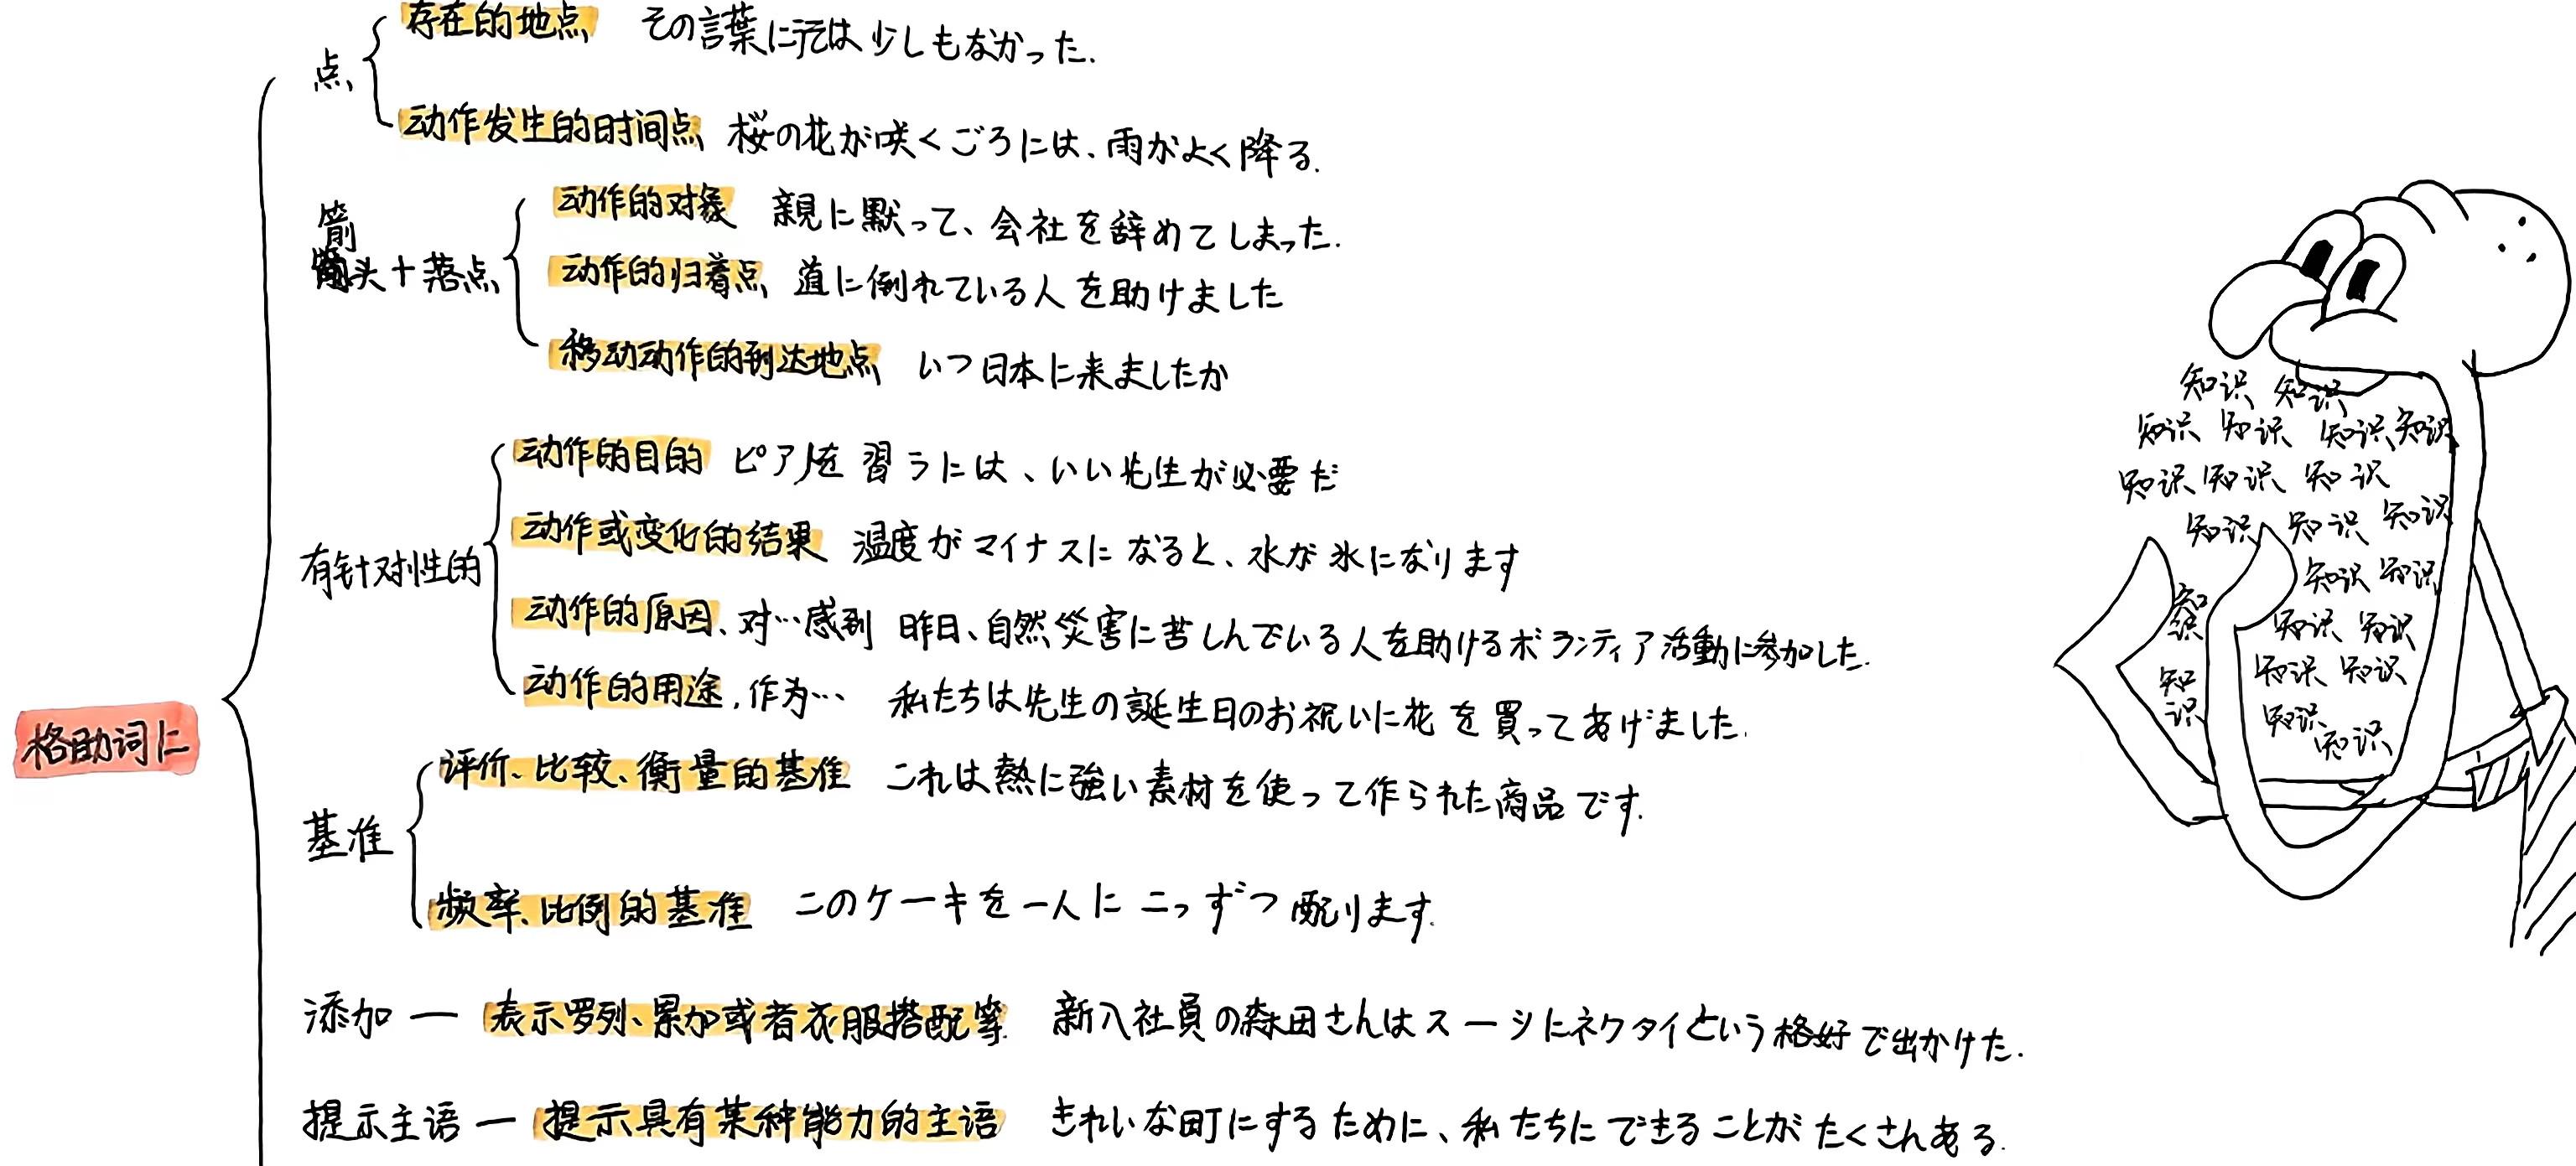 点
存在的地点 その言葉には少しもなかった.
动作发生的时间点 桜の花が咲くごろには、雨がよく降る.
箭
头+落点
动作的对象 親に黙って、会社を辞めてしまった.
动作的归着点 道に倒れている人を助けました
移动动作的到达地点 いつ日本に来ましたか
有针对性的
动作的目的 ピアノを習うには、いい先生が必要だ
动作或变化的结果 温度がマイナスになると、水が氷になります
动作的原因、对…感到 昨日、自然災害に苦しんでいる人を助けるボランティア活動に参加した.
动作的用途,作为… 私たちは先生の誕生日のお祝いに花を買ってあげました.
格助词に
基准
评价、比较、衡量的基准 これは熱に強い素材を使って作られた商品です.
频率、比例的基准 このケーキを一人に二っずつ配ります.
添加 — 表示罗列、累加或者衣服搭配等 新入社員の森田さんはスーツにネクタイという格好で出かけた.
提示主语 — 提示具有某种能力的主语 きれいな町にするために、私たちにできることがたくさんある.
知识 知识
知识 知识 知识 知识
知识 知识 知识
知识 知识 知识
知识 知识
知识 知识 知识
知识 知识 知识
知识
知识